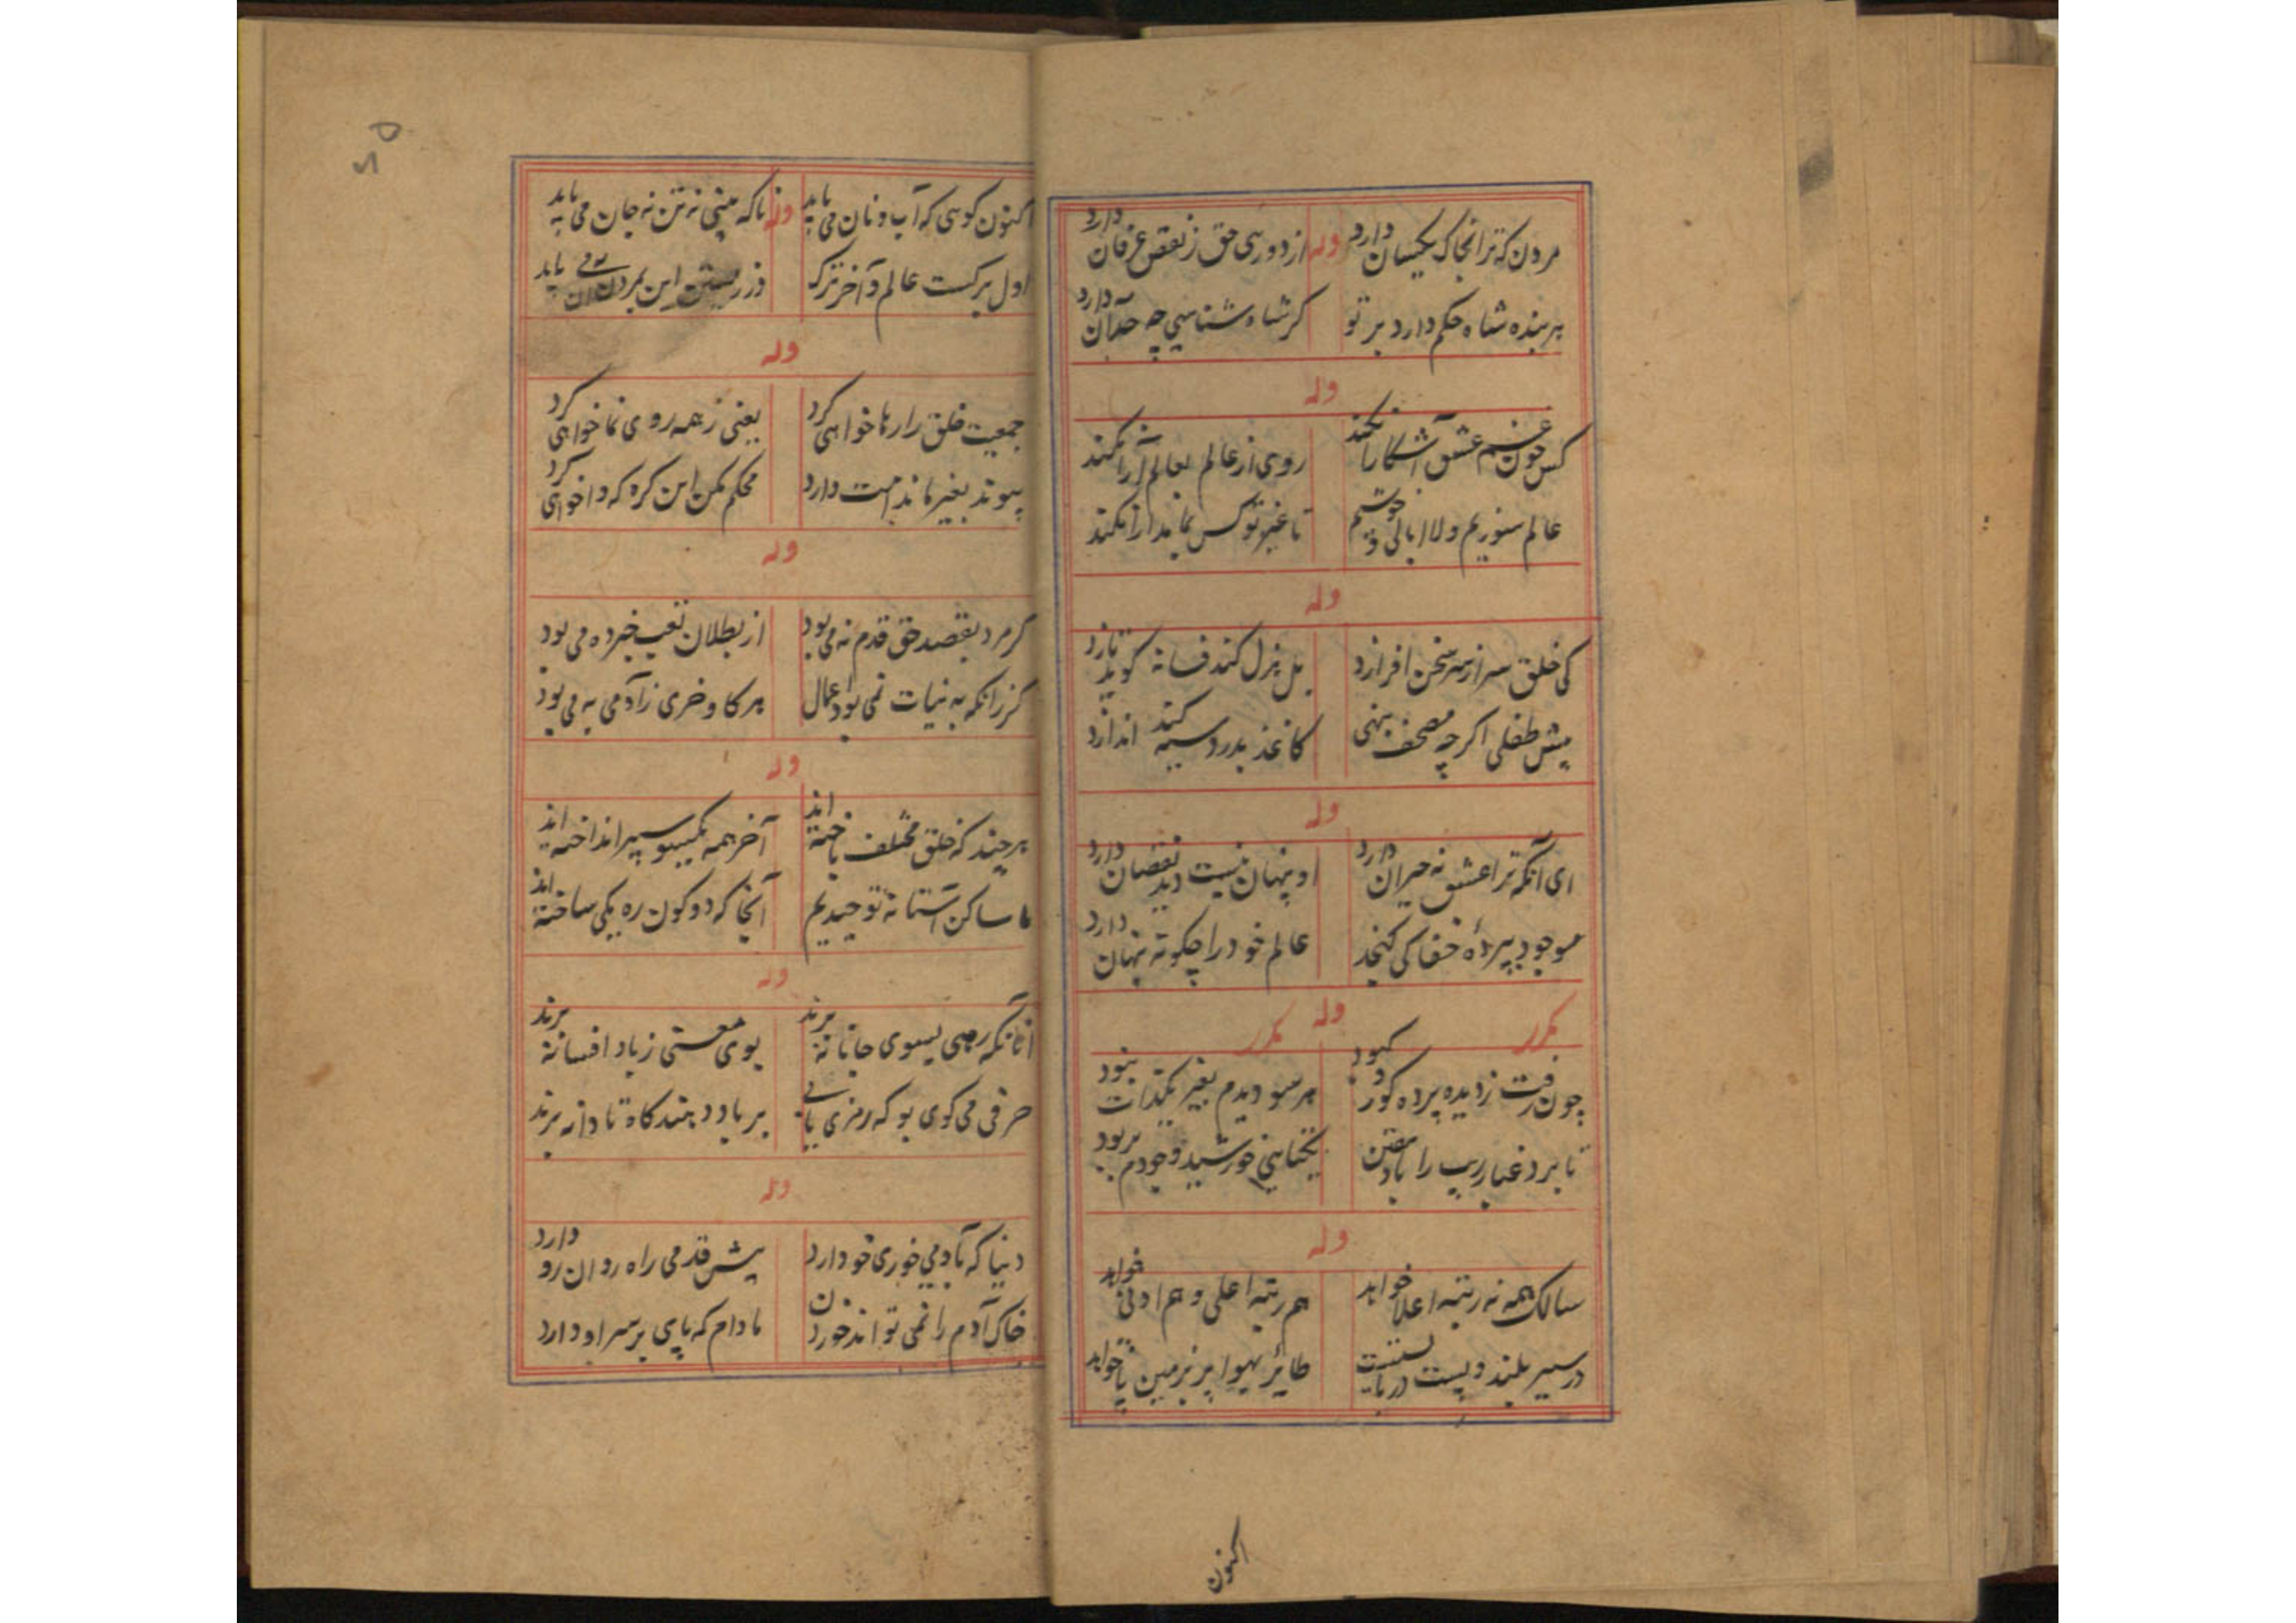 مردن که ترا بخاک یکسان دارد وله از دوری حق ز نقص عرفان دارد
بر بنده شاه حکم دارد بر تو کر شاه شناسی چه حد آن دارد
وله
کس چون غم عشق آشکارا نکند روی از عالم بعالم آرا نکند
عالم سوزیم ولا ابالی و خوشیم تا غیر تو کس بما مدارا نکند
وله
کی خلق سر از سر سخن افرازد بل هزل کند فسانه کوید تازد
پیش طفلی اکرچه مصحف بنهی کاغذ بدرد سیه کند اندازد
وله
ای آنکه ترا عشق نه حیران دارد او پنهان نیست دید نقصان دارد
موجود بپردهٔ خفا کی کنجد عالم خود را چکونه پنهان دارد
مکرر وله مکرر
چون رفت ز دیده پرده کور و کبود هر سو دیدم بغیر یکذات نبود
تا برد غبار ریب را باد یقین یکتایی خورشید وجودم بربود
وله
سالک همه نه رتبه اعلا خواهد هم رتبه اعلی و هم ادنی خواهد
در سیر بلند و پست دربایست طایر بهوا پر بزمین پا خواهد
اکنون
۵۲
اکنون کوسی که آب و نان می باید وله ناکه بینی نه تن نه جان می باید
اول برکست عالم و آخر ترک این بمردن آن می باید
وله
جمعیت خلق را رها خواهی کرد یعنی ز همه روی نما خواهی کرد
پیوند بغیر ما ندامت دارد محکم مکن این کره که وا خواهی کرد
وله
کر مرد بقصد حق قدم نه می بود از بطلان تعب خبرده می بود
کر زانکه به نیات نمی بود اعمال هر کاو خری ز آدمی به می بود
وله
هر چند که خلق مختلف باخته اند آخر همه یکسو سپر انداخته اند
ما ساکن آستانه توحیدیم آنجا که دو کون ره یکی ساخته اند
وله
آنانکه رهی بسوی جانانه برند بوی مستی ز باد افسانه برند
حرفی می کوی بو که رمزی یابی بر باد دهند کاه تا دانه برند
وله
دنیا که بآدمی خوری خو دارد پیش قدمی راه روان رو دارد
خاک آدم را نمی تواند خوردن مادام که پای بر سر او دارد